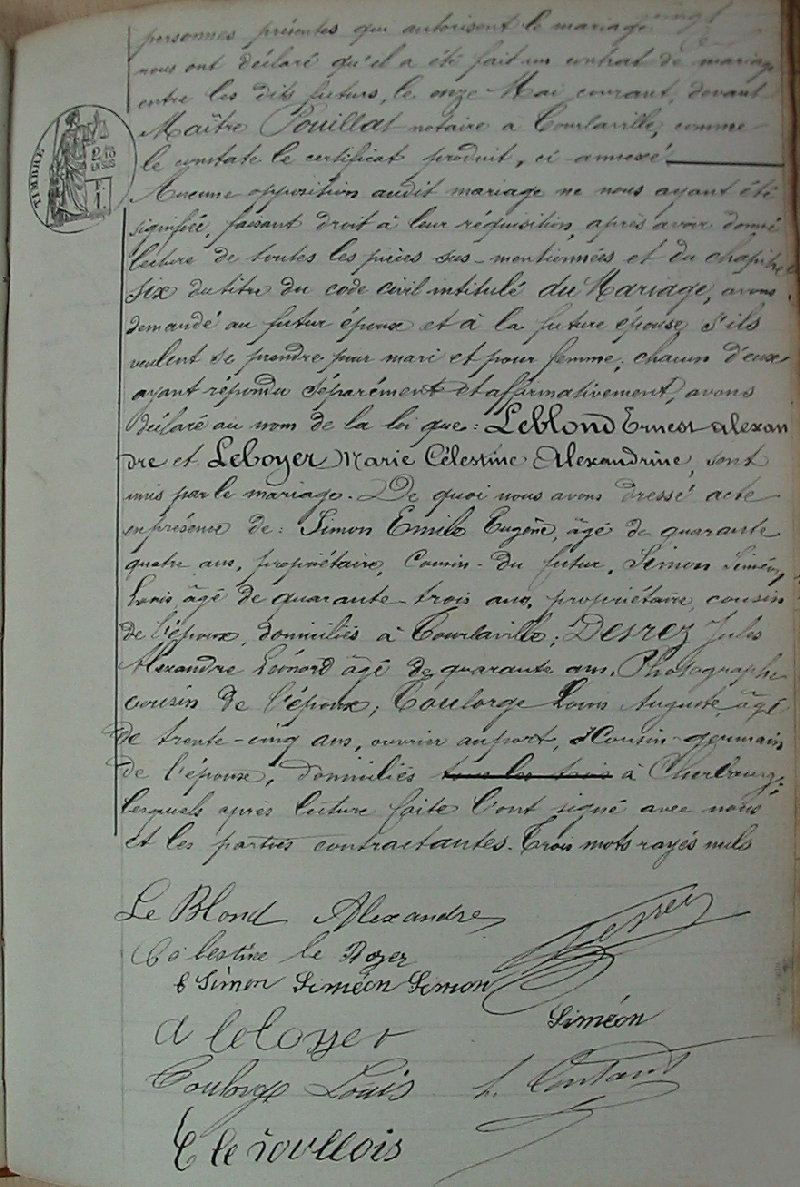 personnes présentes qui autorisent le mariage
nous ont déclaré qu'il a été fait un contrat de mariage
entre les dits futurs, le onze Mai courant, devant
Maître Pouillat notaire à Tourlaville, comme
le constate le certificat produit, ci-annexé
TIMBRE
Aucune opposition audit mariage ne nous ayant été
signifiée, faisant droit à leur réquisition, après avoir donné
lecture de toutes les pièces sus-mentionnées et du chapitre
six du titre du code civil intitulé du Mariage, avons
demandé au futur époux et à la future épouse s'ils
veulent se prendre pour mari et pour femme, chacun d'eux
ayant répondu séparément et affirmativement, avons
déclaré au nom de la loi que: Leblond Ernest Alexan
dre et Leboyer Marie Célestine Alexandrine, sont
unis par le mariage. De quoi nous avons dressé acte
en présence de: Simon Emile Eugène, âgé de quarante
quatre ans, propriétaire, cousin du futur, Simon Siméon
Louis âgé de quarante-trois ans, propriétaire, cousin
de l'époux, domiciliés à Tourlaville; Desrez Jules
Alexandre Léonord âgé de quarante ans, Photographe
cousin de l'époux; Coulorge Louis Auguste, âgé
de trente-cinq ans, ouvrier au port, Cousin-germain
de l'épouse, domiciliés tous les trois à Cherbourg;
lesquels après lecture faite l'ont signé avec nous
et les parties contractantes. Trois mots rayés nuls
Le Blond Alexandre
Célestine le Boyer
E Simon Siméon Simon
Siméon
a leboyer
Coulorge Louis